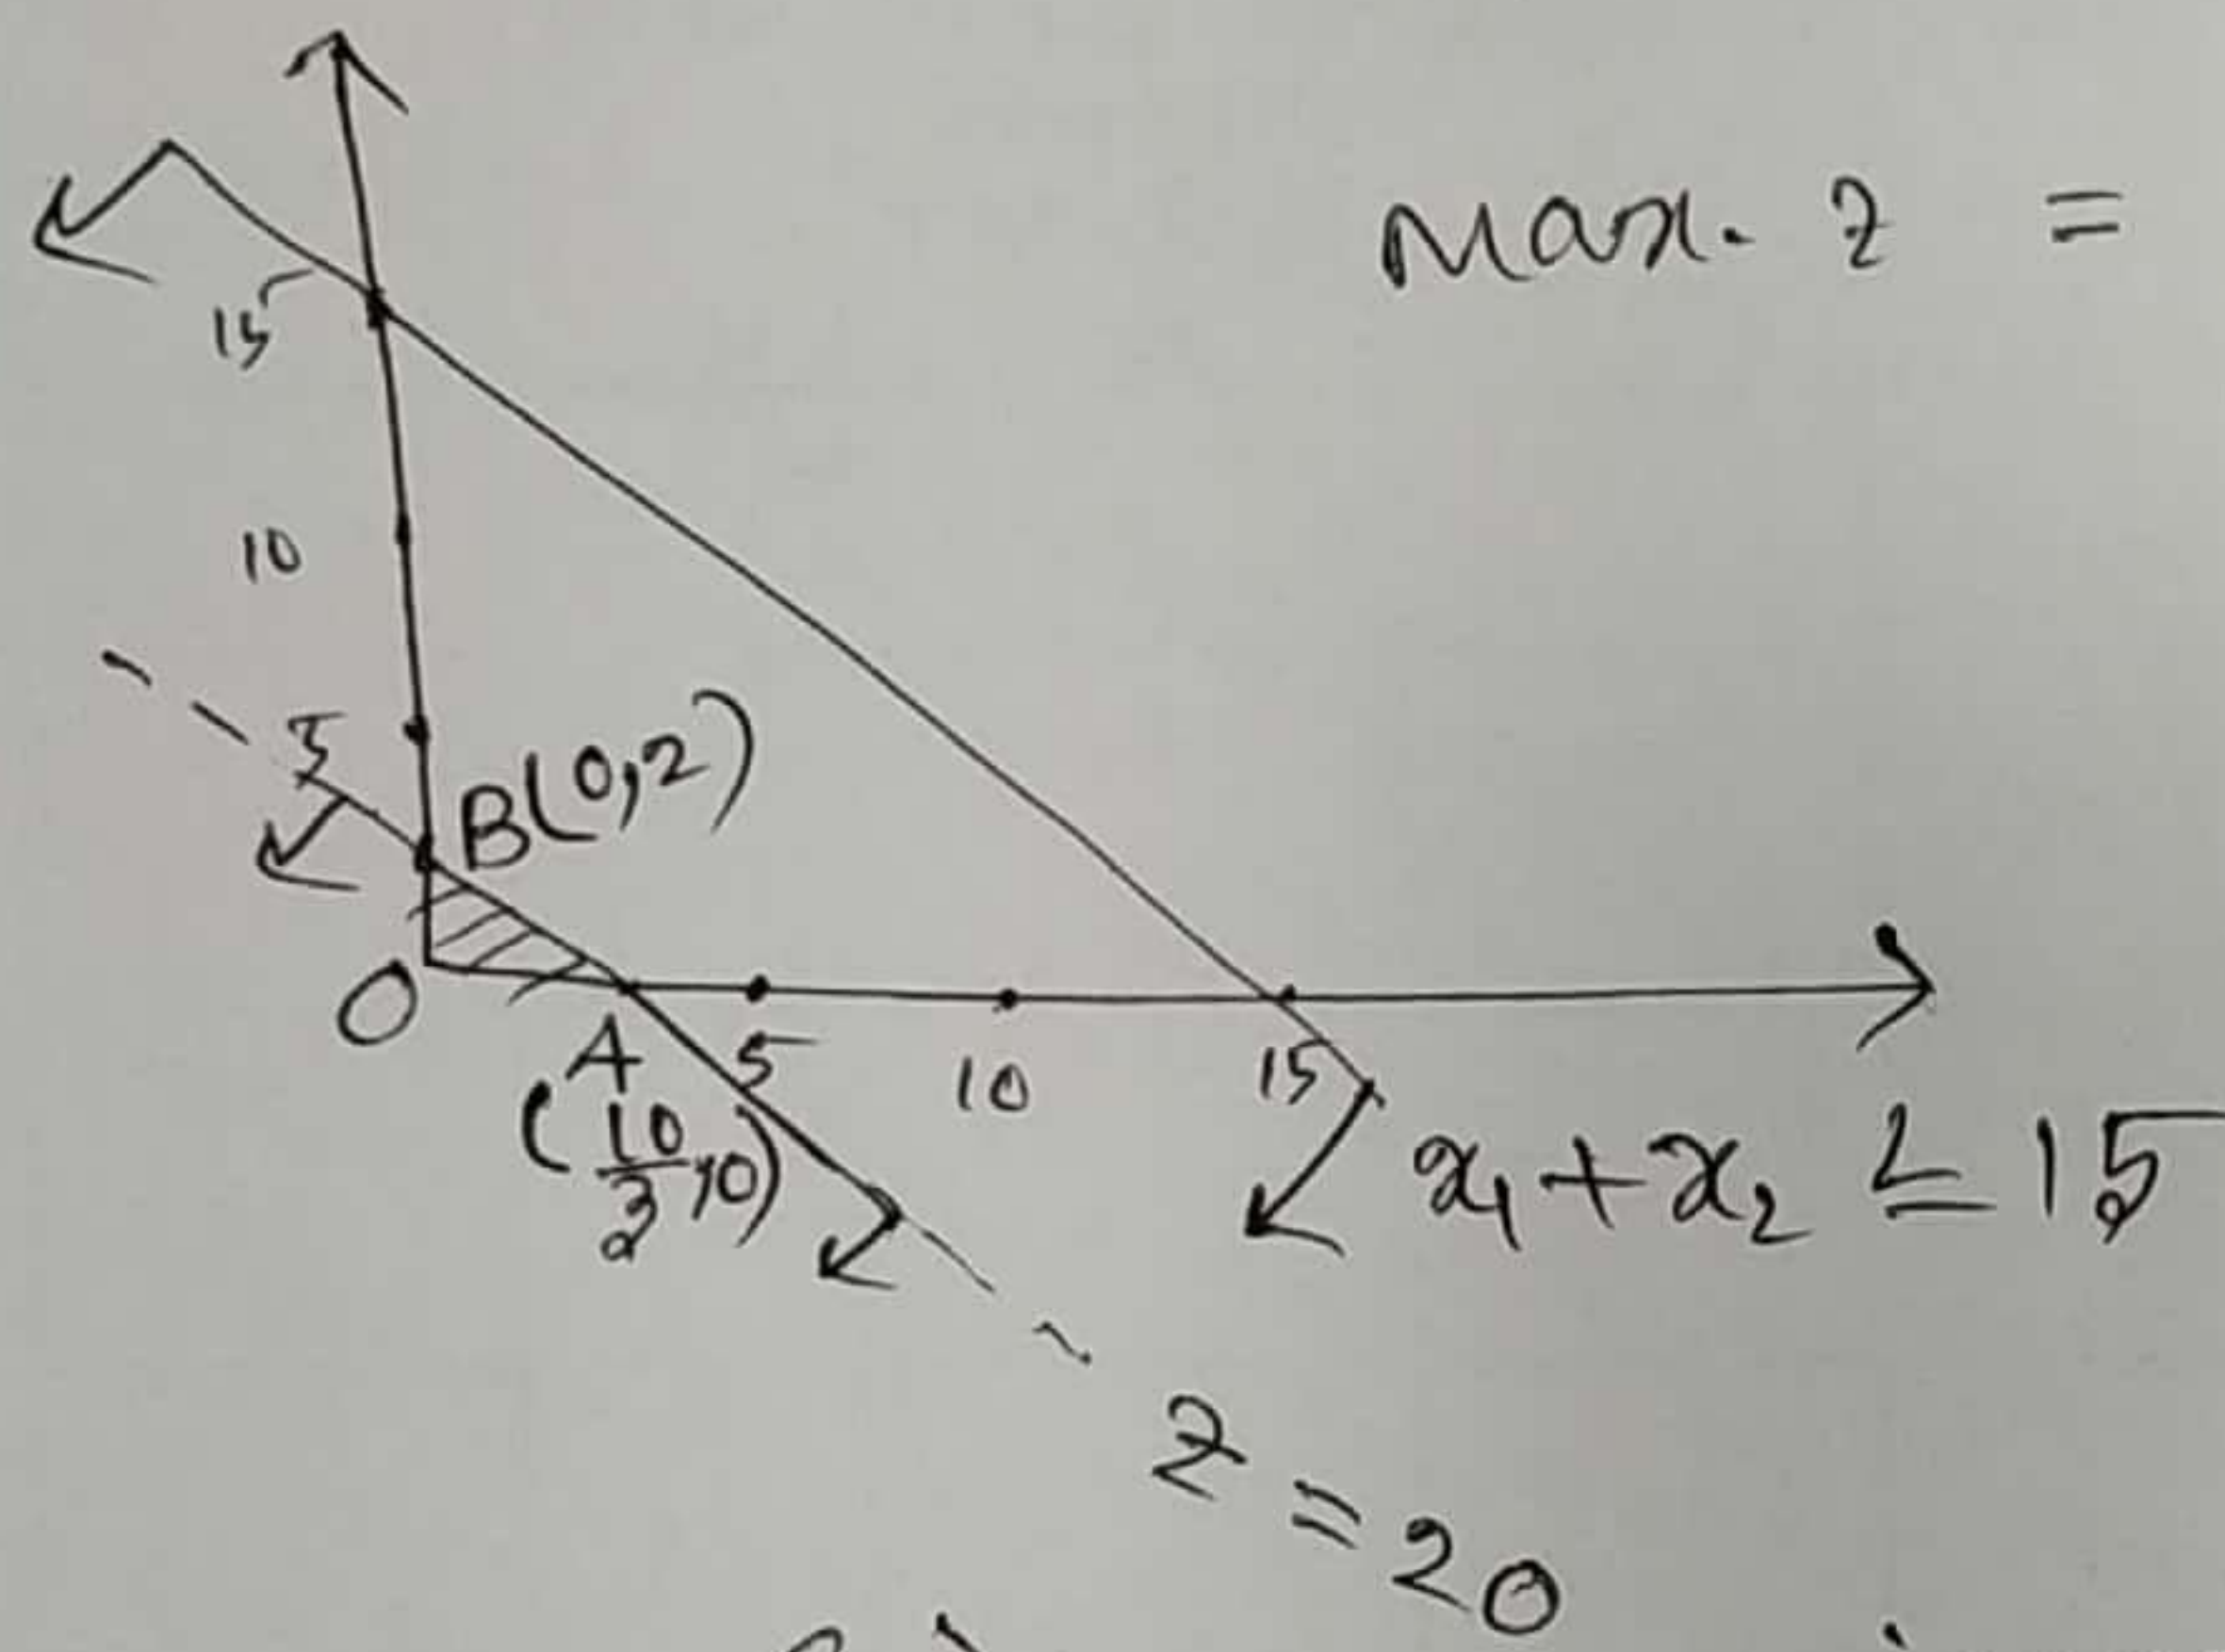 Max. z =
15
10
5
B(0,2)
O
A
5
10
15
(10/3,0)
x₁+x₂ ≤ 15
z = 20